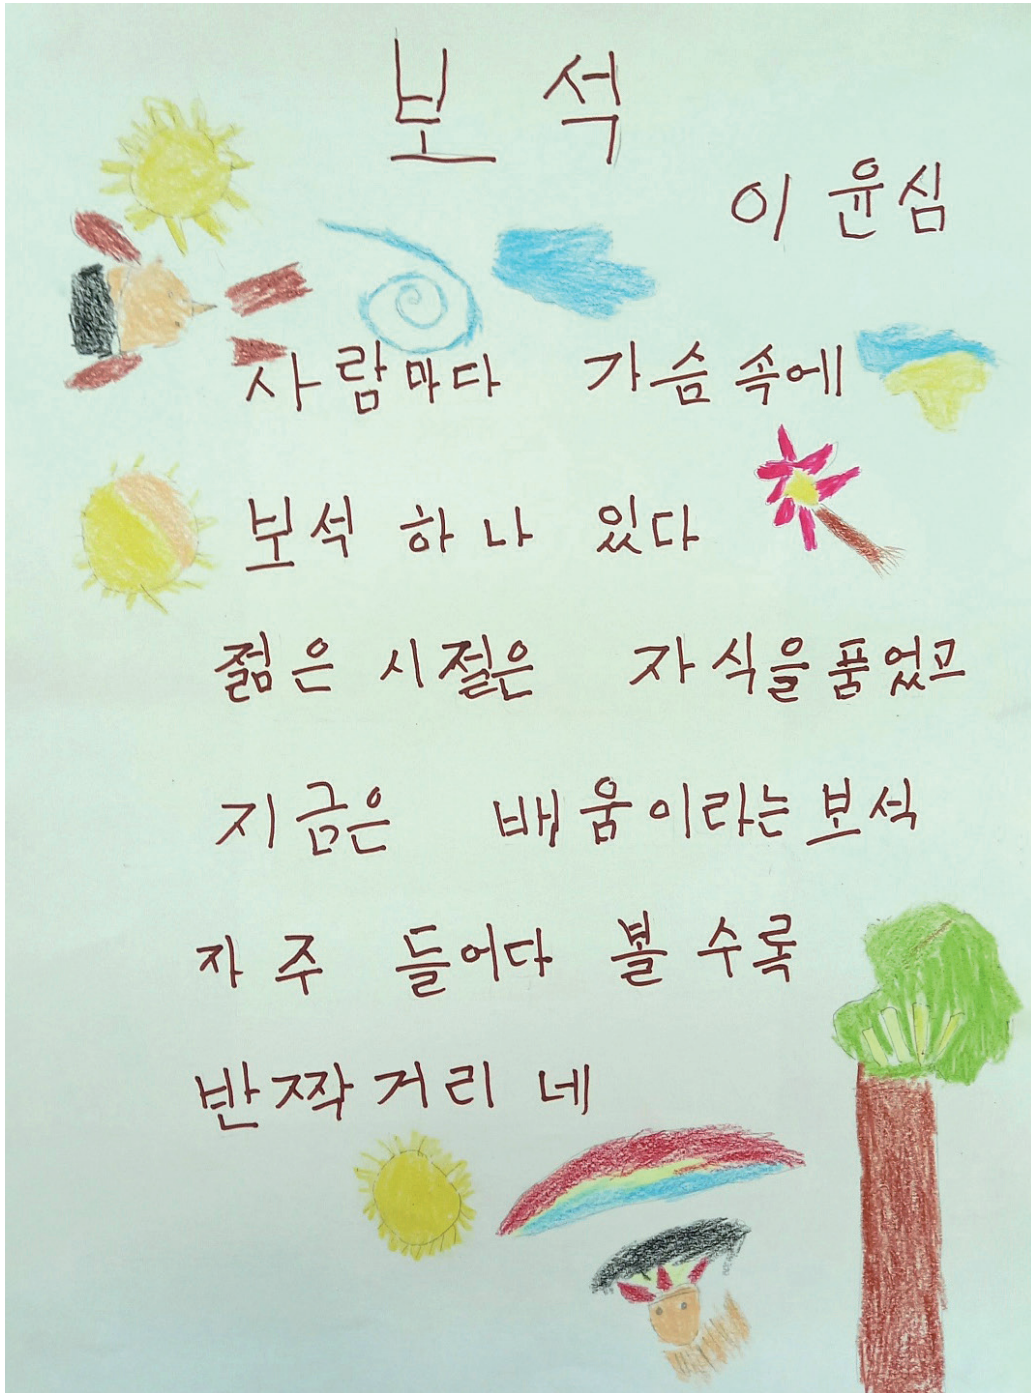 보석
이윤심
사람마다 가슴속에
보석 하나 있다
젊은 시절은 자식을 품었고
지금은 배움이라는 보석
자주 들어다 볼 수록
반짝거리네